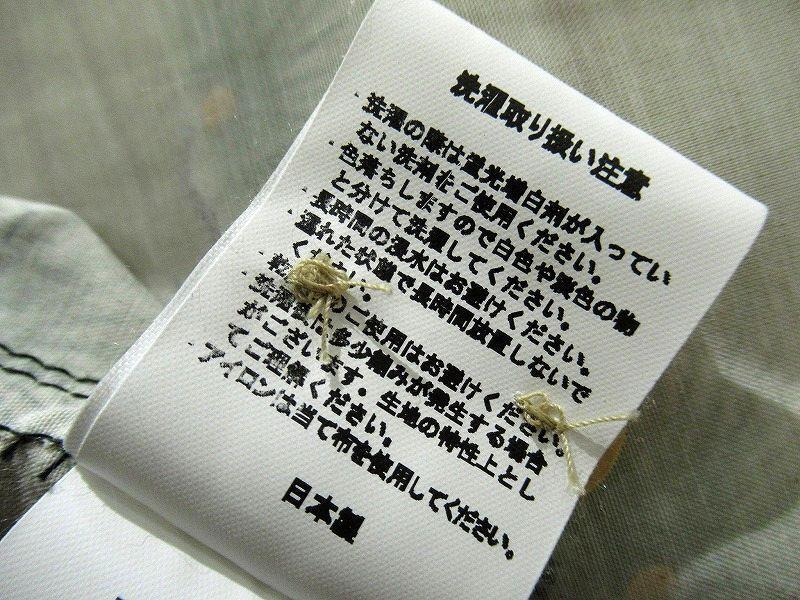 洗濯取り扱い注意
・洗濯の際は蛍光増白剤が入ってい
ない洗剤をご使用ください。
・色落ちしますので白色や淡色の物
と分けて洗濯してください。
・長時間の浸水はお避けください。
・濡れた状態で長時間放置しないで
ください。
・乾 のご使用はお避けください。
・洗濯 は多少縮みが発生する場合
がございます。生地の特性上とし
てご理解ください。
・アイロンは当て布を使用してください。
日本製